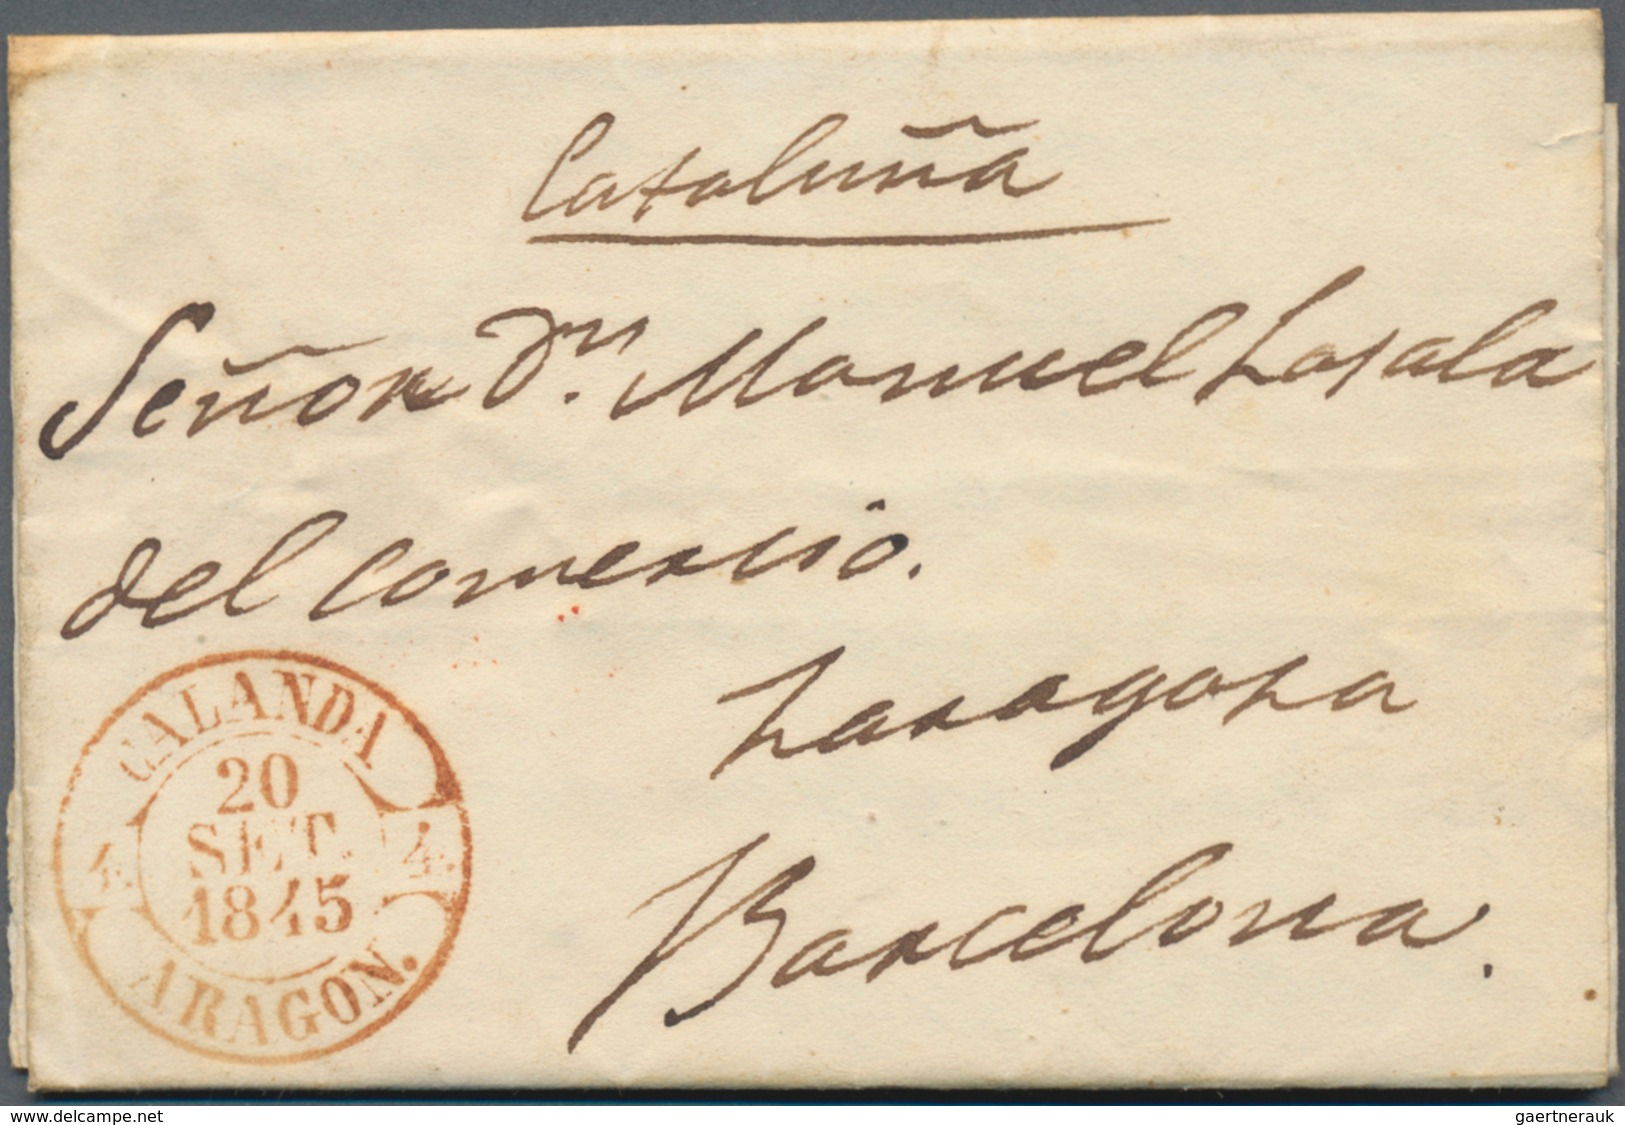 Cataluña
Señor Dn. Manuel Lasala
del comercio.
Zaragoza
Barcelona.
CALANDA
20
SET.
1845
4. 4.
ARAGON.
www.delcampe.net
gaertnerauk